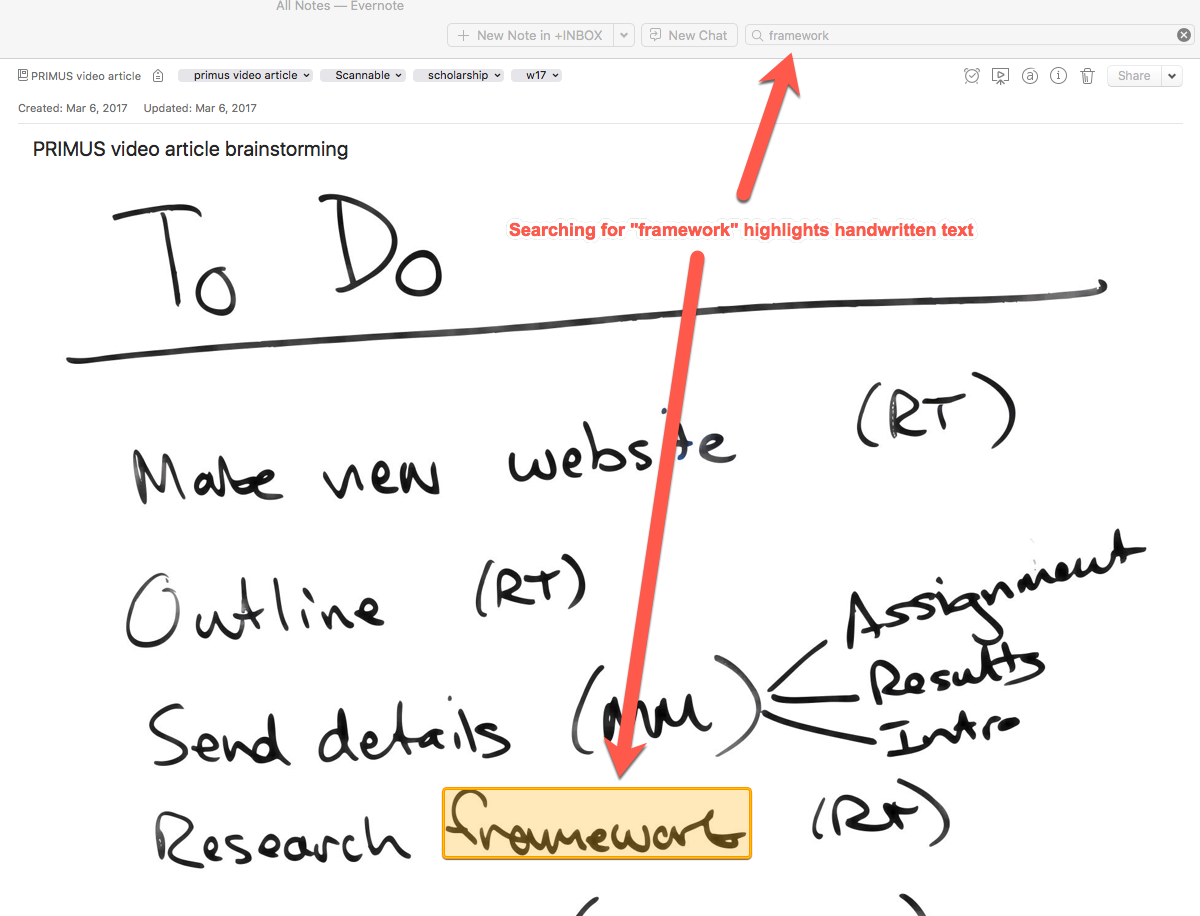 All Notes — Evernote
New Note in +INBOX New Chat framework
PRIMUS video article primus video article Scannable scholarship w17 Share
Created: Mar 6, 2017 Updated: Mar 6, 2017
PRIMUS video article brainstorming
To Do
Searching for "framework" highlights handwritten text
Make new website (RT)
Outline (RT)
Assignment
Send details Results
Intro
Research framework (RT)